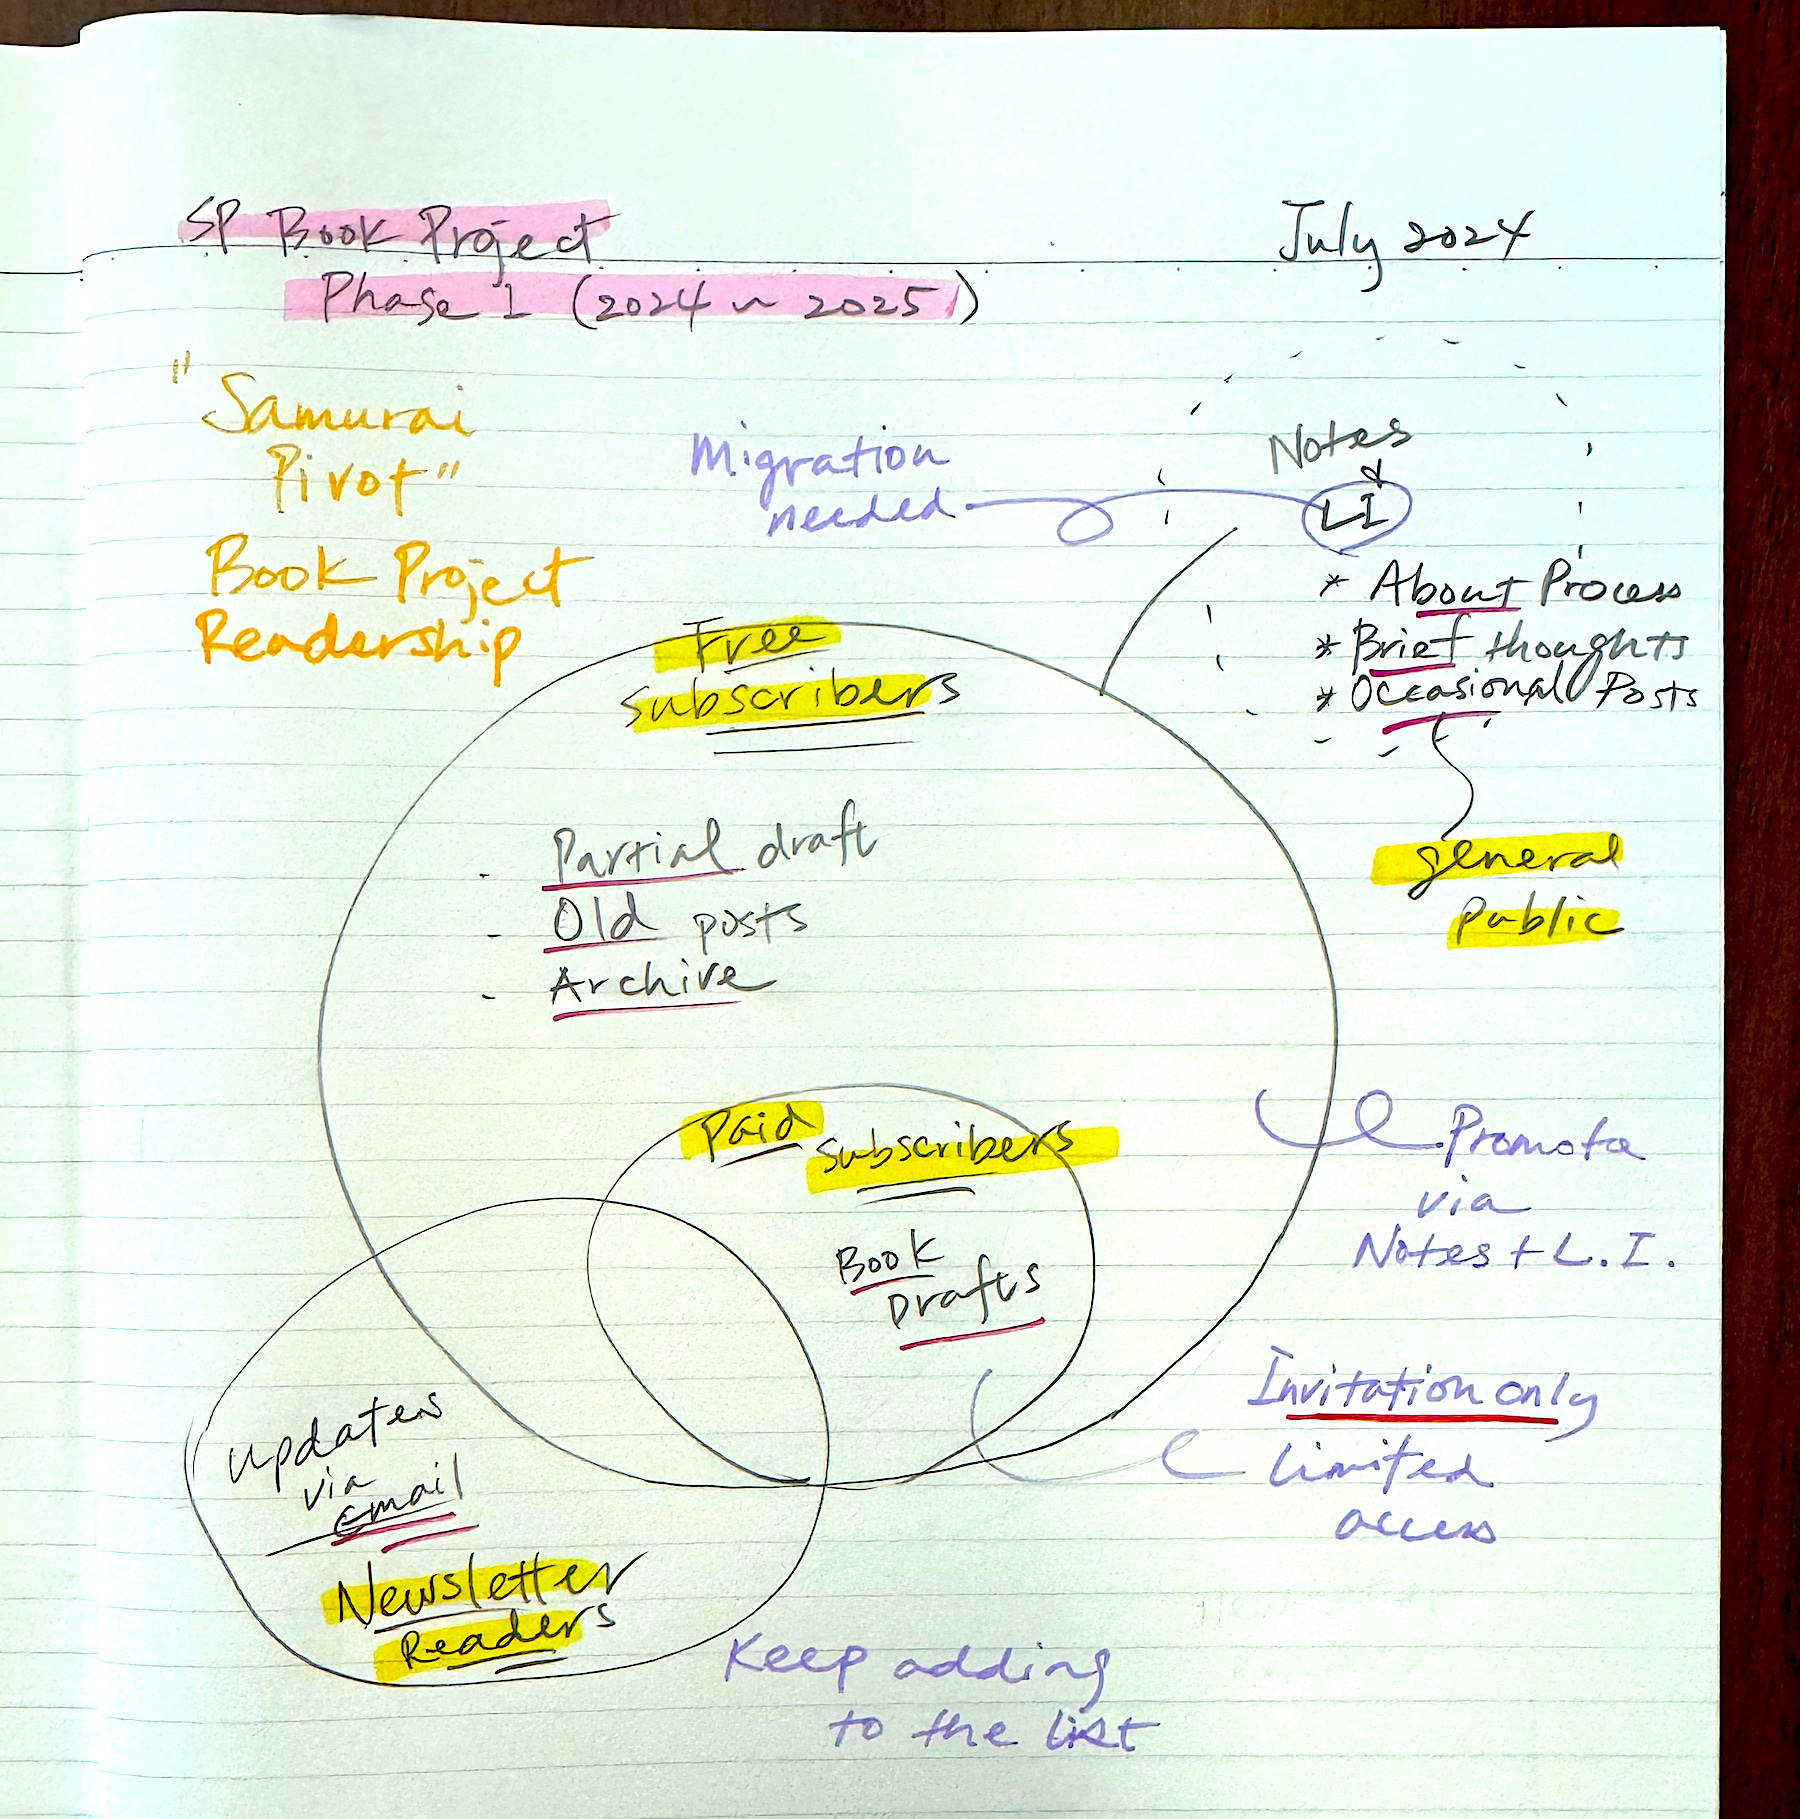 SP Book Project
July 2024
Phase 1 (2024 ~ 2025)
"Samurai
Pivot"
Book Project
Readership
Migration
needed
Notes
&
LI
* About Process
* Brief thoughts
* Occasional Posts
general
public
Free
subscribers
- Partial draft
- Old posts
- Archive
Paid
subscribers
Book
Drafts
Promote
via
Notes + L.I.
Invitation only
limited
access
updates
via
email
Newsletter
Readers
Keep adding
to the list